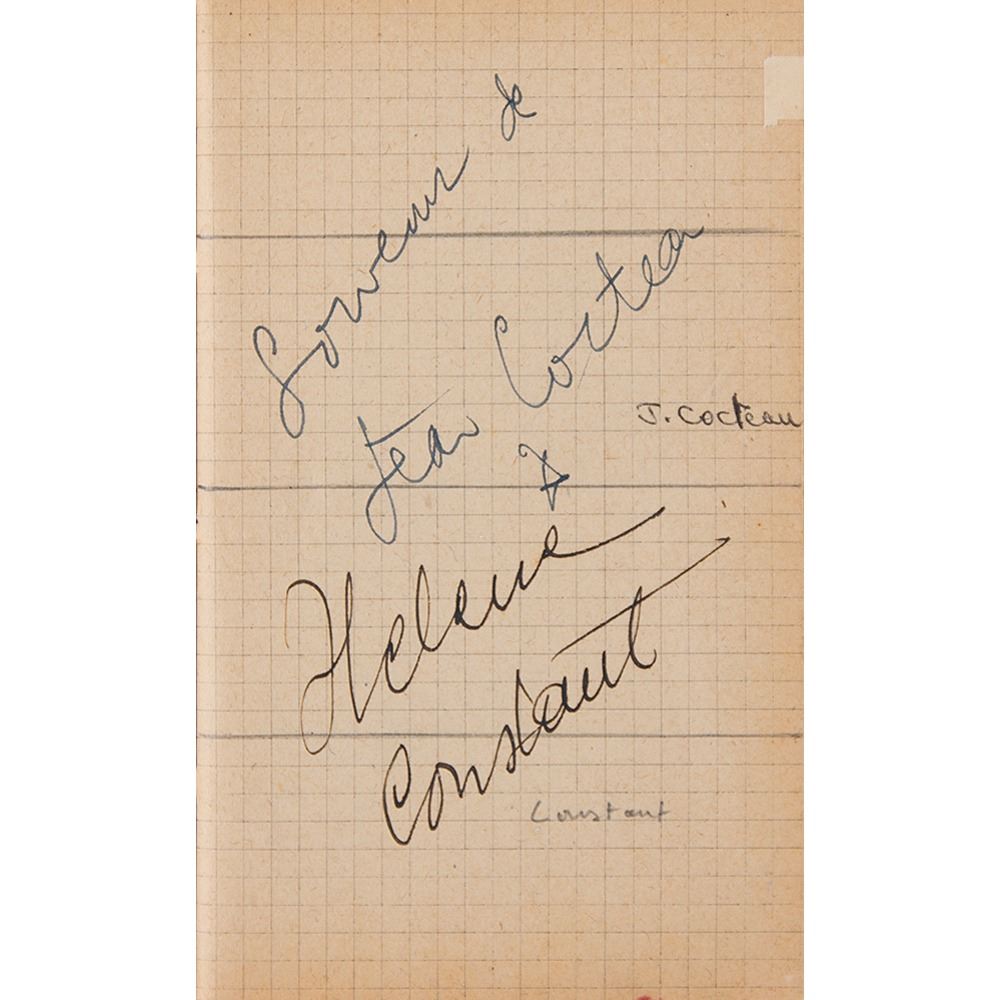 Souvenir de
Jean Cocteau
J. Cocteau
Helene
Constant
Constant